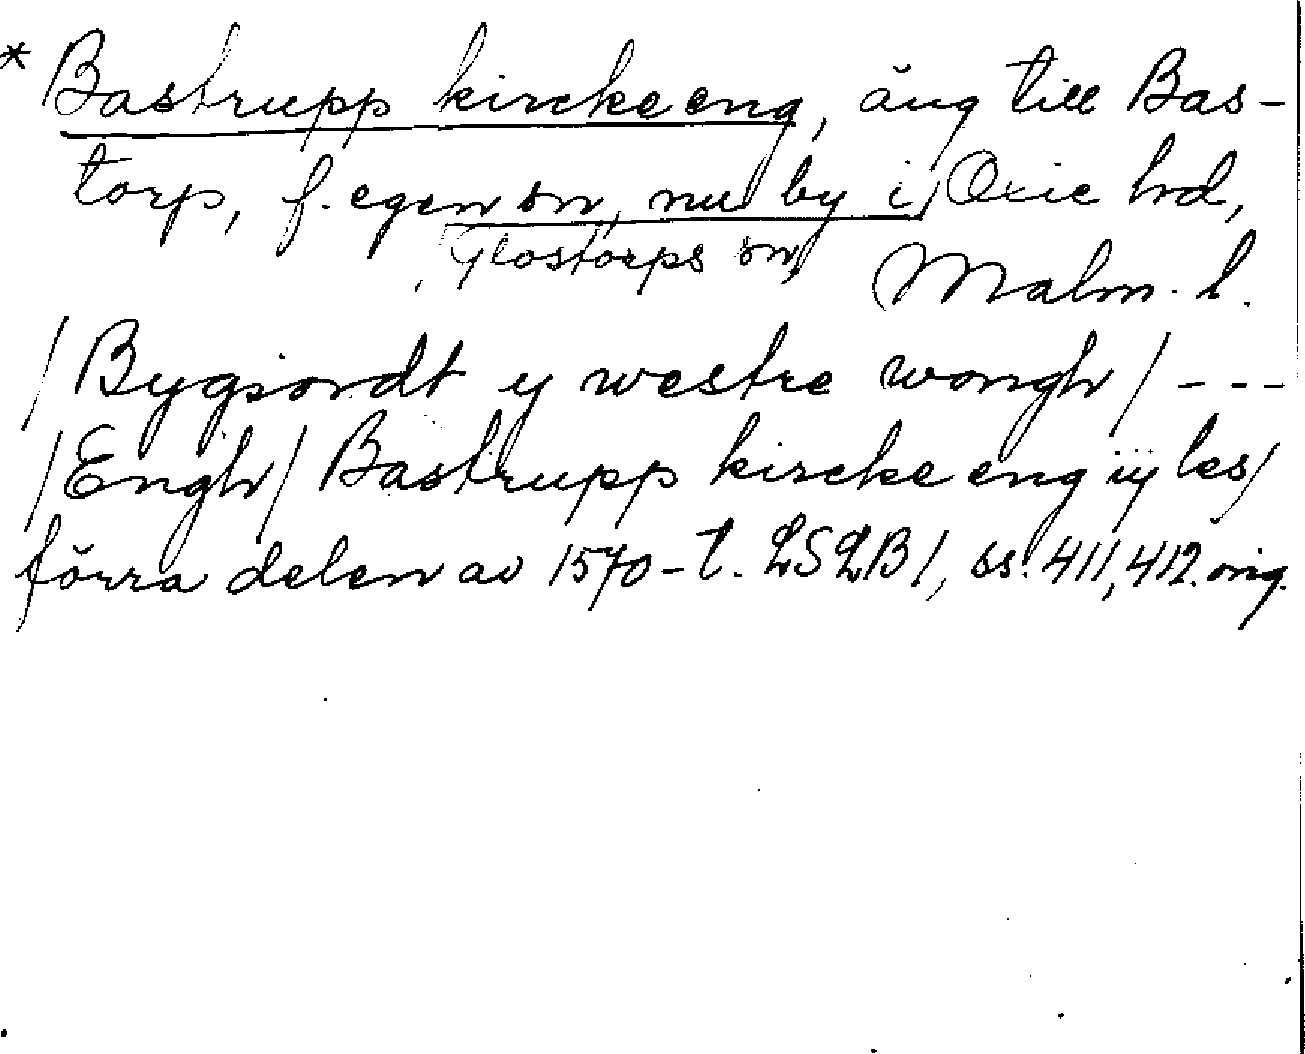 * Bastrupp kircke eng, äng till Bas-
torp, f. egen sn, nu by i Oxie hd,
Glostorps sn, Malm. l.
/Bygiordt y westre wongh/ ---
/Engh/ Bastrupp kircke eng iij les/
förra delen av 1570-t. LSLB1, ss. 411, 412. orig.